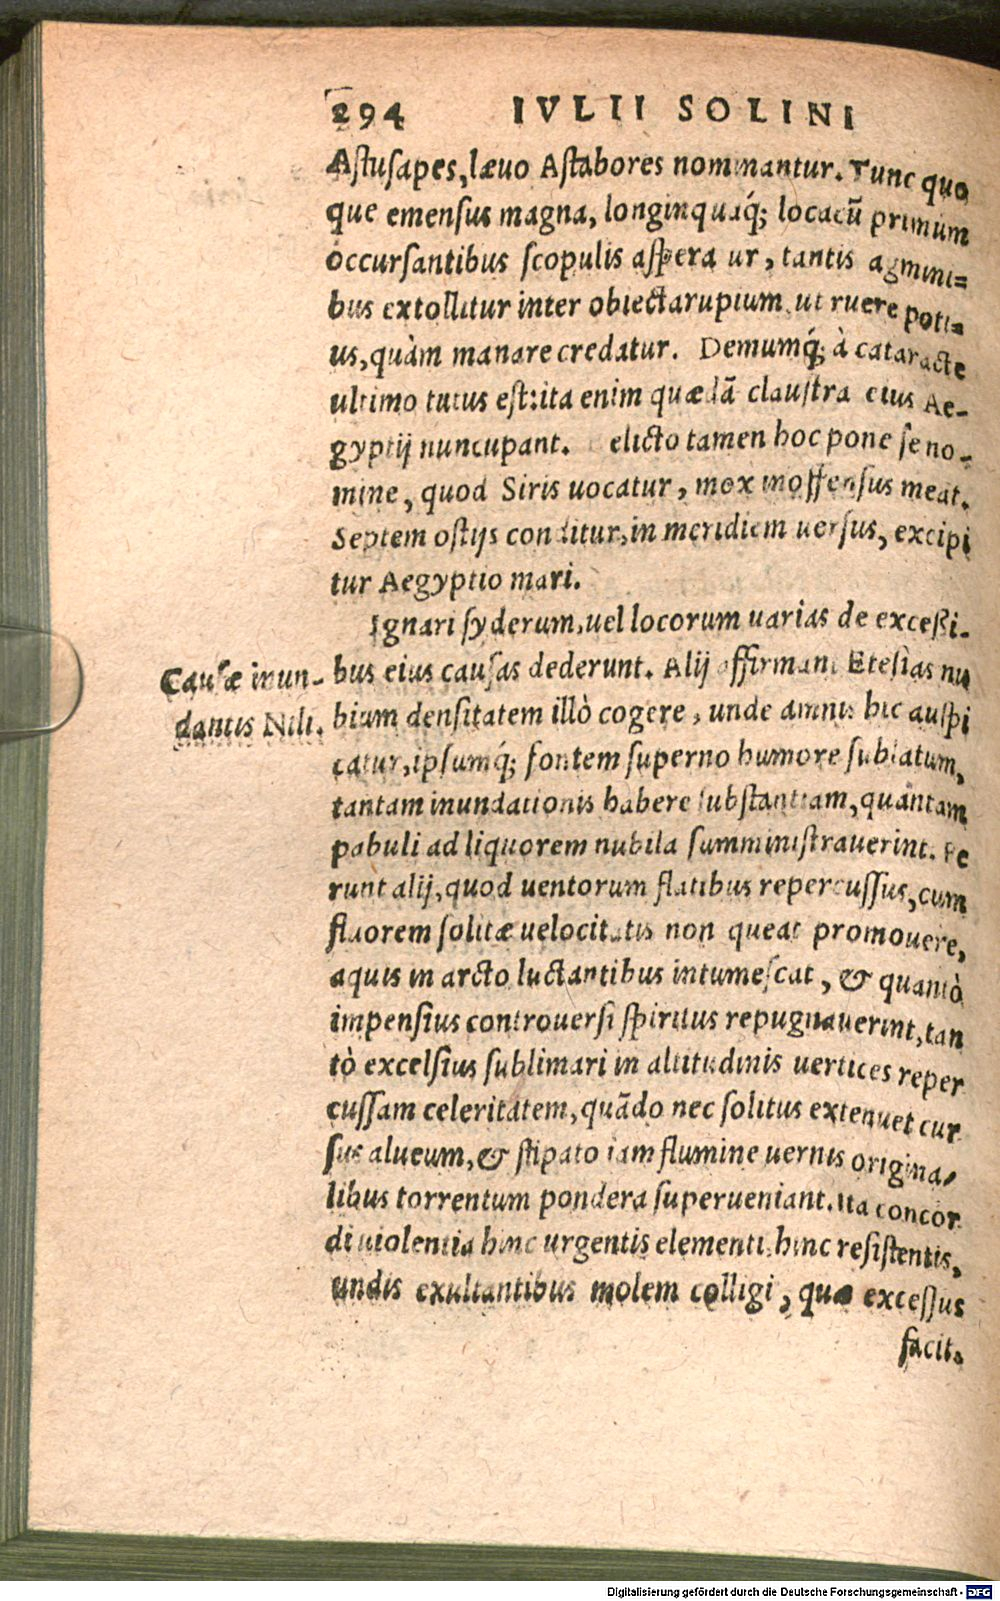 294 IVLII SOLINI
Astusapes, lævo Astabores nominantur. Tunc quo
que emensus magna, longinquaq́; locacũ primùm
occursantibus scopulis aspera ur, tantis agmini=
bus extollitur inter obiectarupium, ut ruere poti=
us, quàm manare credatur. Demumq́; à cataracte
ultimo tutus est: ita enim quædã claustra eius Ae-
gyptij nuncupant. elicto tamen hoc pone se no-
mine, quod Siris uocatur, mox inoffensus meat.
Septem ostijs conditur, in meridiem uersus, excipi
tur Aegyptio mari.
Ignari syderum, uel locorum uarias de excessi-
bus eius causas dederunt. Alij affirmant Etesias nu
Causæ inun-
dantis Nili.
bium densitatem illò cogere, unde amnis hic auspi
catur, ipsumq́; fontem superno humore sublatum,
tantam inundationis habere substantiam, quantam
pabuli ad liquorem nubila sumministrauerint. Fe
runt alij, quod uentorum flatibus repercussus, cum
fluorem solitæ uelocitatis non queat promouere,
aquis in arcto luctantibus intumescat, & quantò
impensius controuersi spiritus repugnauerint, tan
tò excelsius sublimari in altitudinis uertices reper
cussam celeritatem, quãdo nec solitus extenuet cur
sus alueum, & stipato iam flumine uernis origina-
libus torrentum pondera superueniant. Ita concor
di uiolentia hinc urgentis elementi, hinc resistentis,
undis exultantibus molem colligi, quæ excessus
facit.
Digitalisierung gefördert durch die Deutsche Forschungsgemeinschaft - DFG